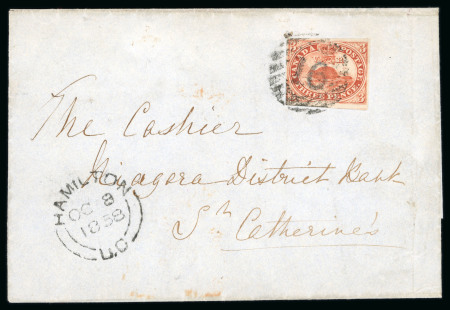 CANADA POSTAGE
THREE PENCE
The Cashier
Niagara District Bank
St Catherine's
HAMILTON
OC 8
1858
U.C